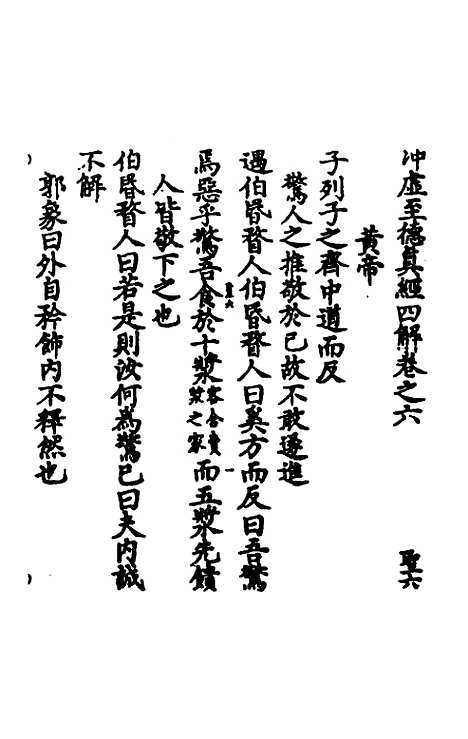 冲虛至德真經四解卷之六 聖六
黃帝
子列子之齊中道而反
驚人之推敬於己故不敢遂進
遇伯昬瞀人伯昬瞀人曰奚方而反曰吾驚
焉惡乎驚吾食於十漿客舍賣漿之家而五漿先饋
人皆敬下之也
伯昬瞀人曰若是則汝何為驚己曰夫內誠
不解
郭象曰外自矜飾內不釋然也